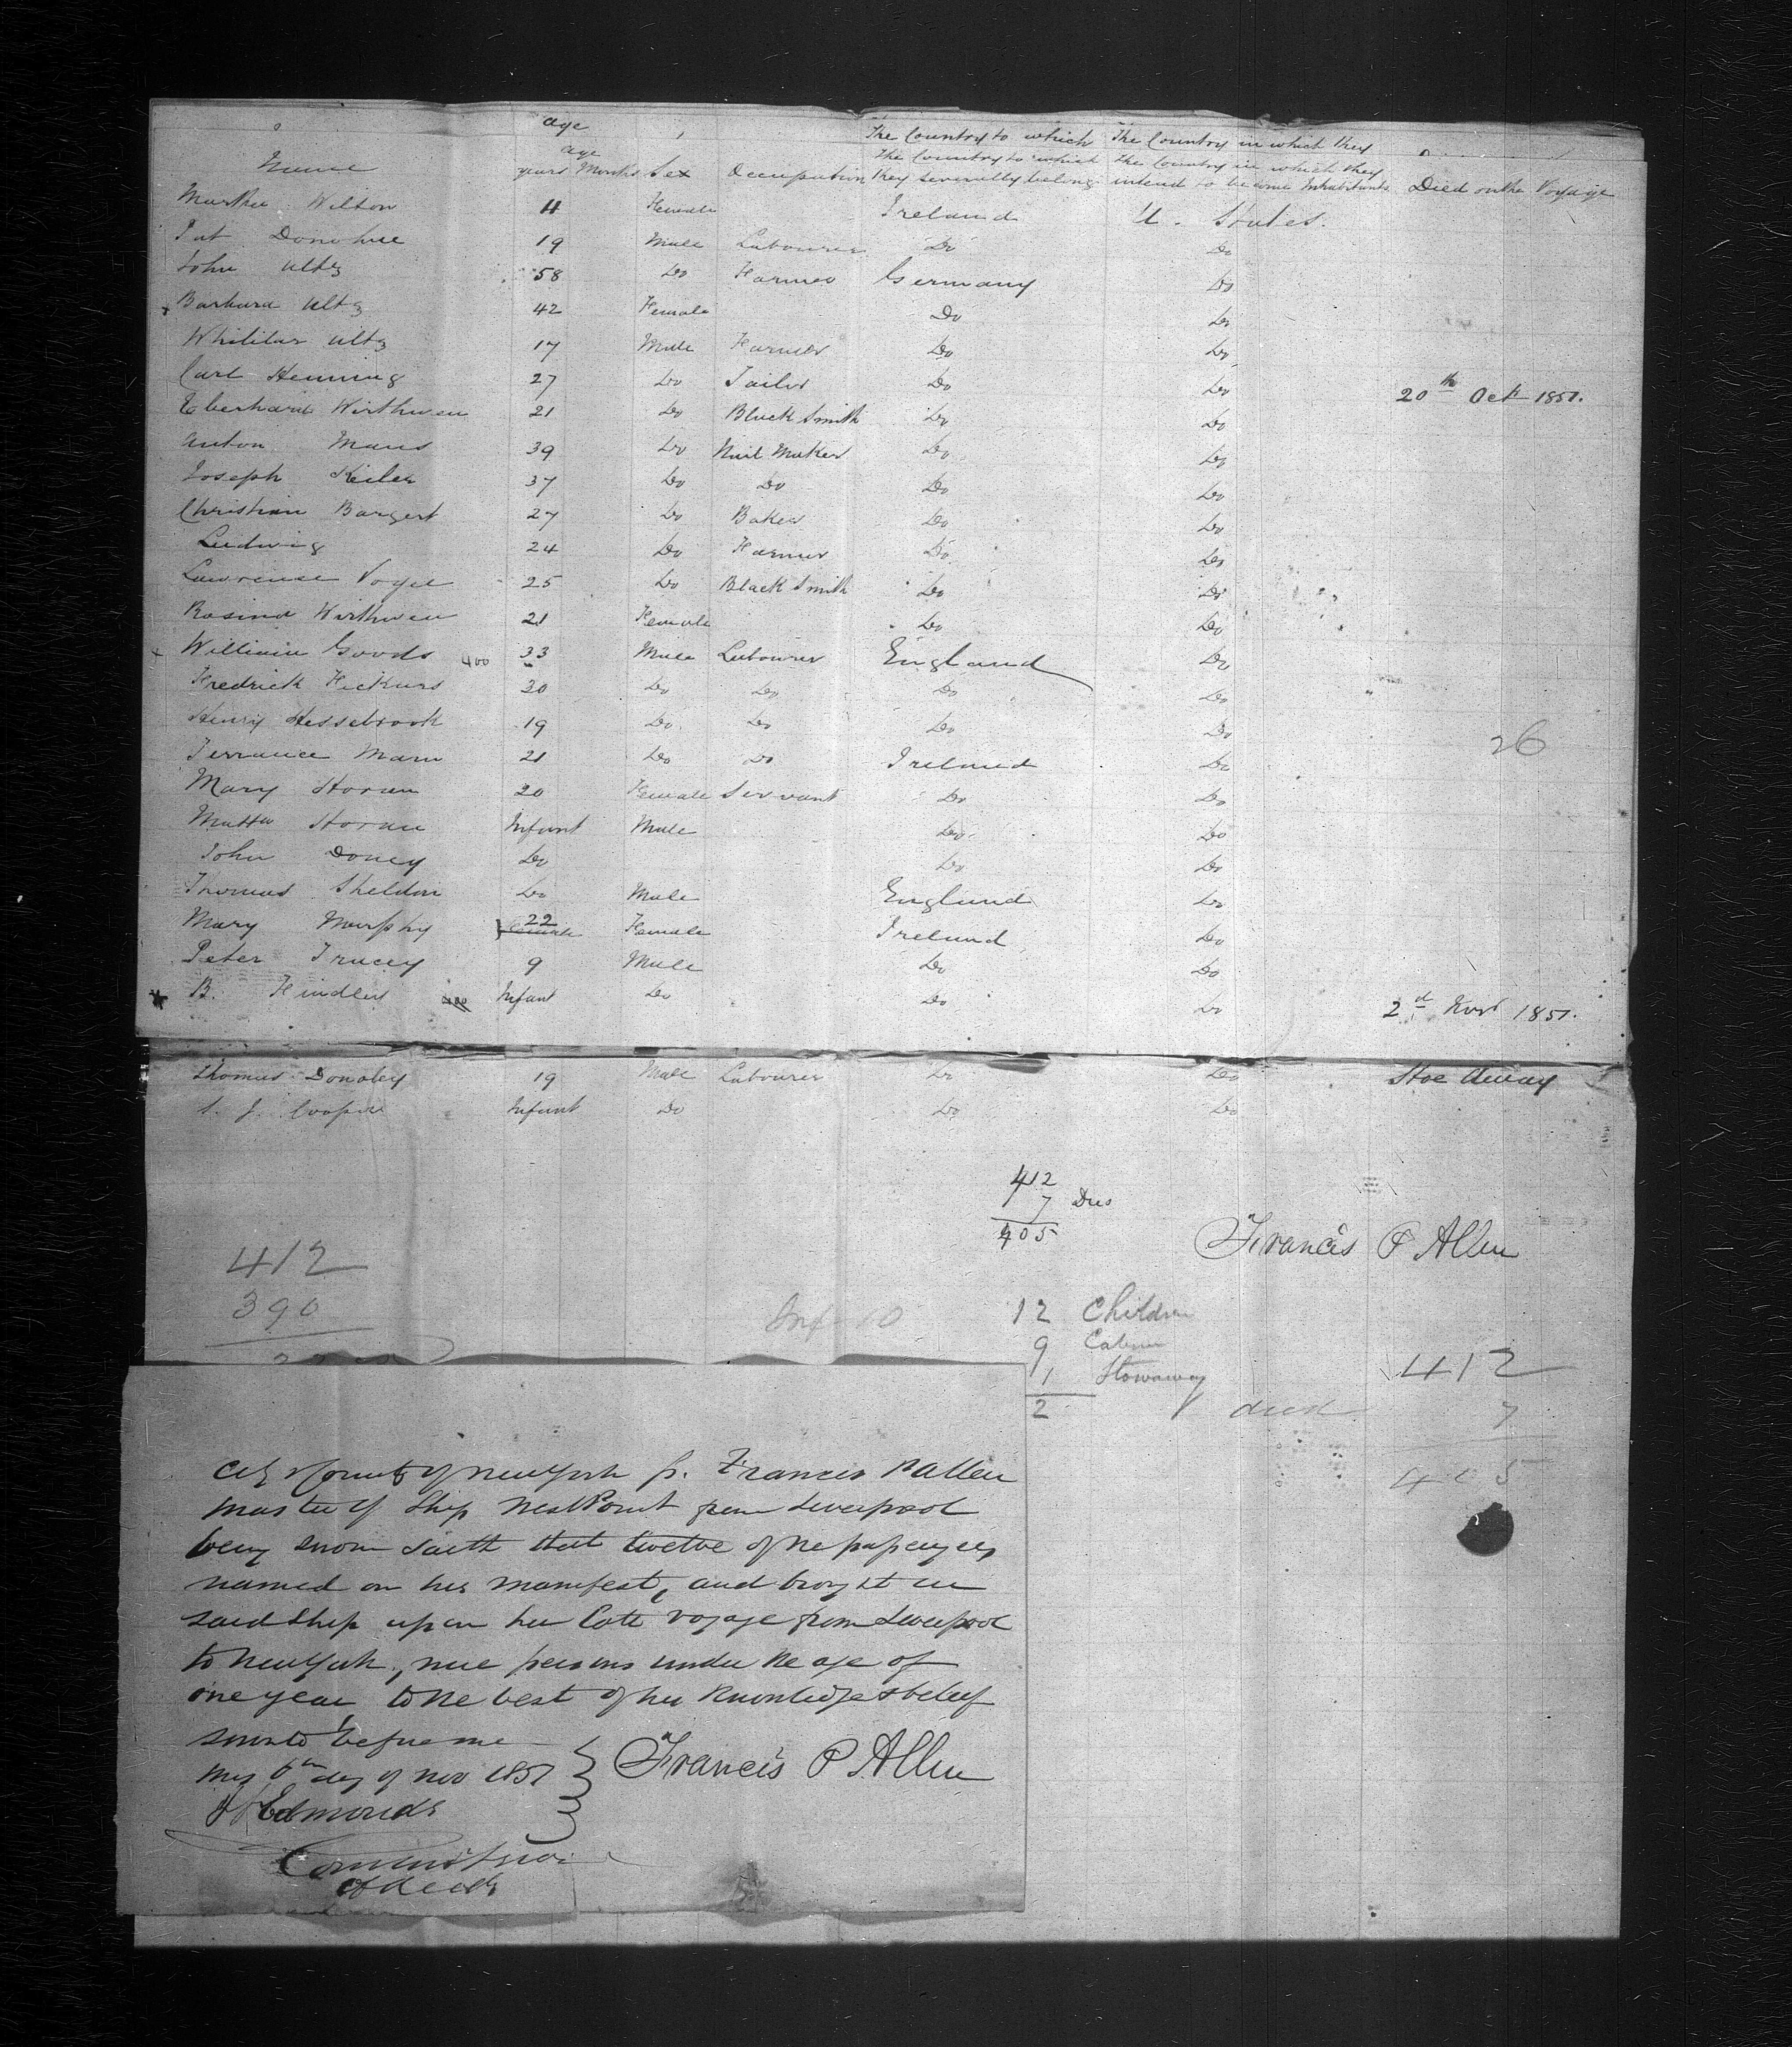 age
The Country to which The Country in which they
Name age years Months Sex Occupation The Country to which they severally belong The Country in which they intend to become Inhabitants Died on the Voyage
Martha Wilton 4 Female Ireland U. States.
Pat Donohue 19 Male Labourer Do Do
John Ultz 58 Do Farmer Germany Do
Barbara Ultz 42 Female Do Do
Ultz 17 Male Farmer Do Do
Carl Henning 27 Do Tailor Do Do 20th Oct 1851.
Eberhard Wirthwen 21 Do Black Smith Do Do
Anton Maus 39 Do Nail Maker Do Do
Joseph Keiler 37 Do Do Do Do
Christian Bargert 27 Do Baker Do Do
Ludwig 24 Do Farmer Do Do
Lawrence Vogel 25 Do Black Smith Do Do
Rosina Wirthwen 21 Female Do Do
William Goods 400 33 Male Labourer England Do
Fredrick Fickurs 20 Do Do Do Do
Henry Hessebrook 19 Do Do Do Do
26
Terrance Marn 21 Do Do Ireland Do
Mary Horan 20 Female Servant Do Do
Mattw Horan Infant Male Do Do
John Doney Do Do Do
Thomas Sheldon Do Male England Do
Mary Murphy 22 Female Ireland Do
Peter Tracey 9 Male Do Do
B. Hindley 400 Infant Do Do Do 2d Novr 1851.
Thomas Donoley 19 Male Labourer Do Do Stoe Away
S. J. Cooper Infant Do Do Do
412
7 Dies
405
Francis P Allen
412
390
22
Inf 10
12 Children
9 Cabin
1 Stowaway
2
412
died 7
405
City & County of New York ss. Francis P Allen
master of Ship West Point from Liverpool
being sworn saith that twelve of the passengers
named on his manifest, and brought in
said ship upon her late voyage from Liverpool
to New York, were persons under the age of
one year to the best of his knowledge & belief
sworn to before me
this 6th day of Nov 1851 Francis P Allen
Edmonds
Commissioner
of deeds